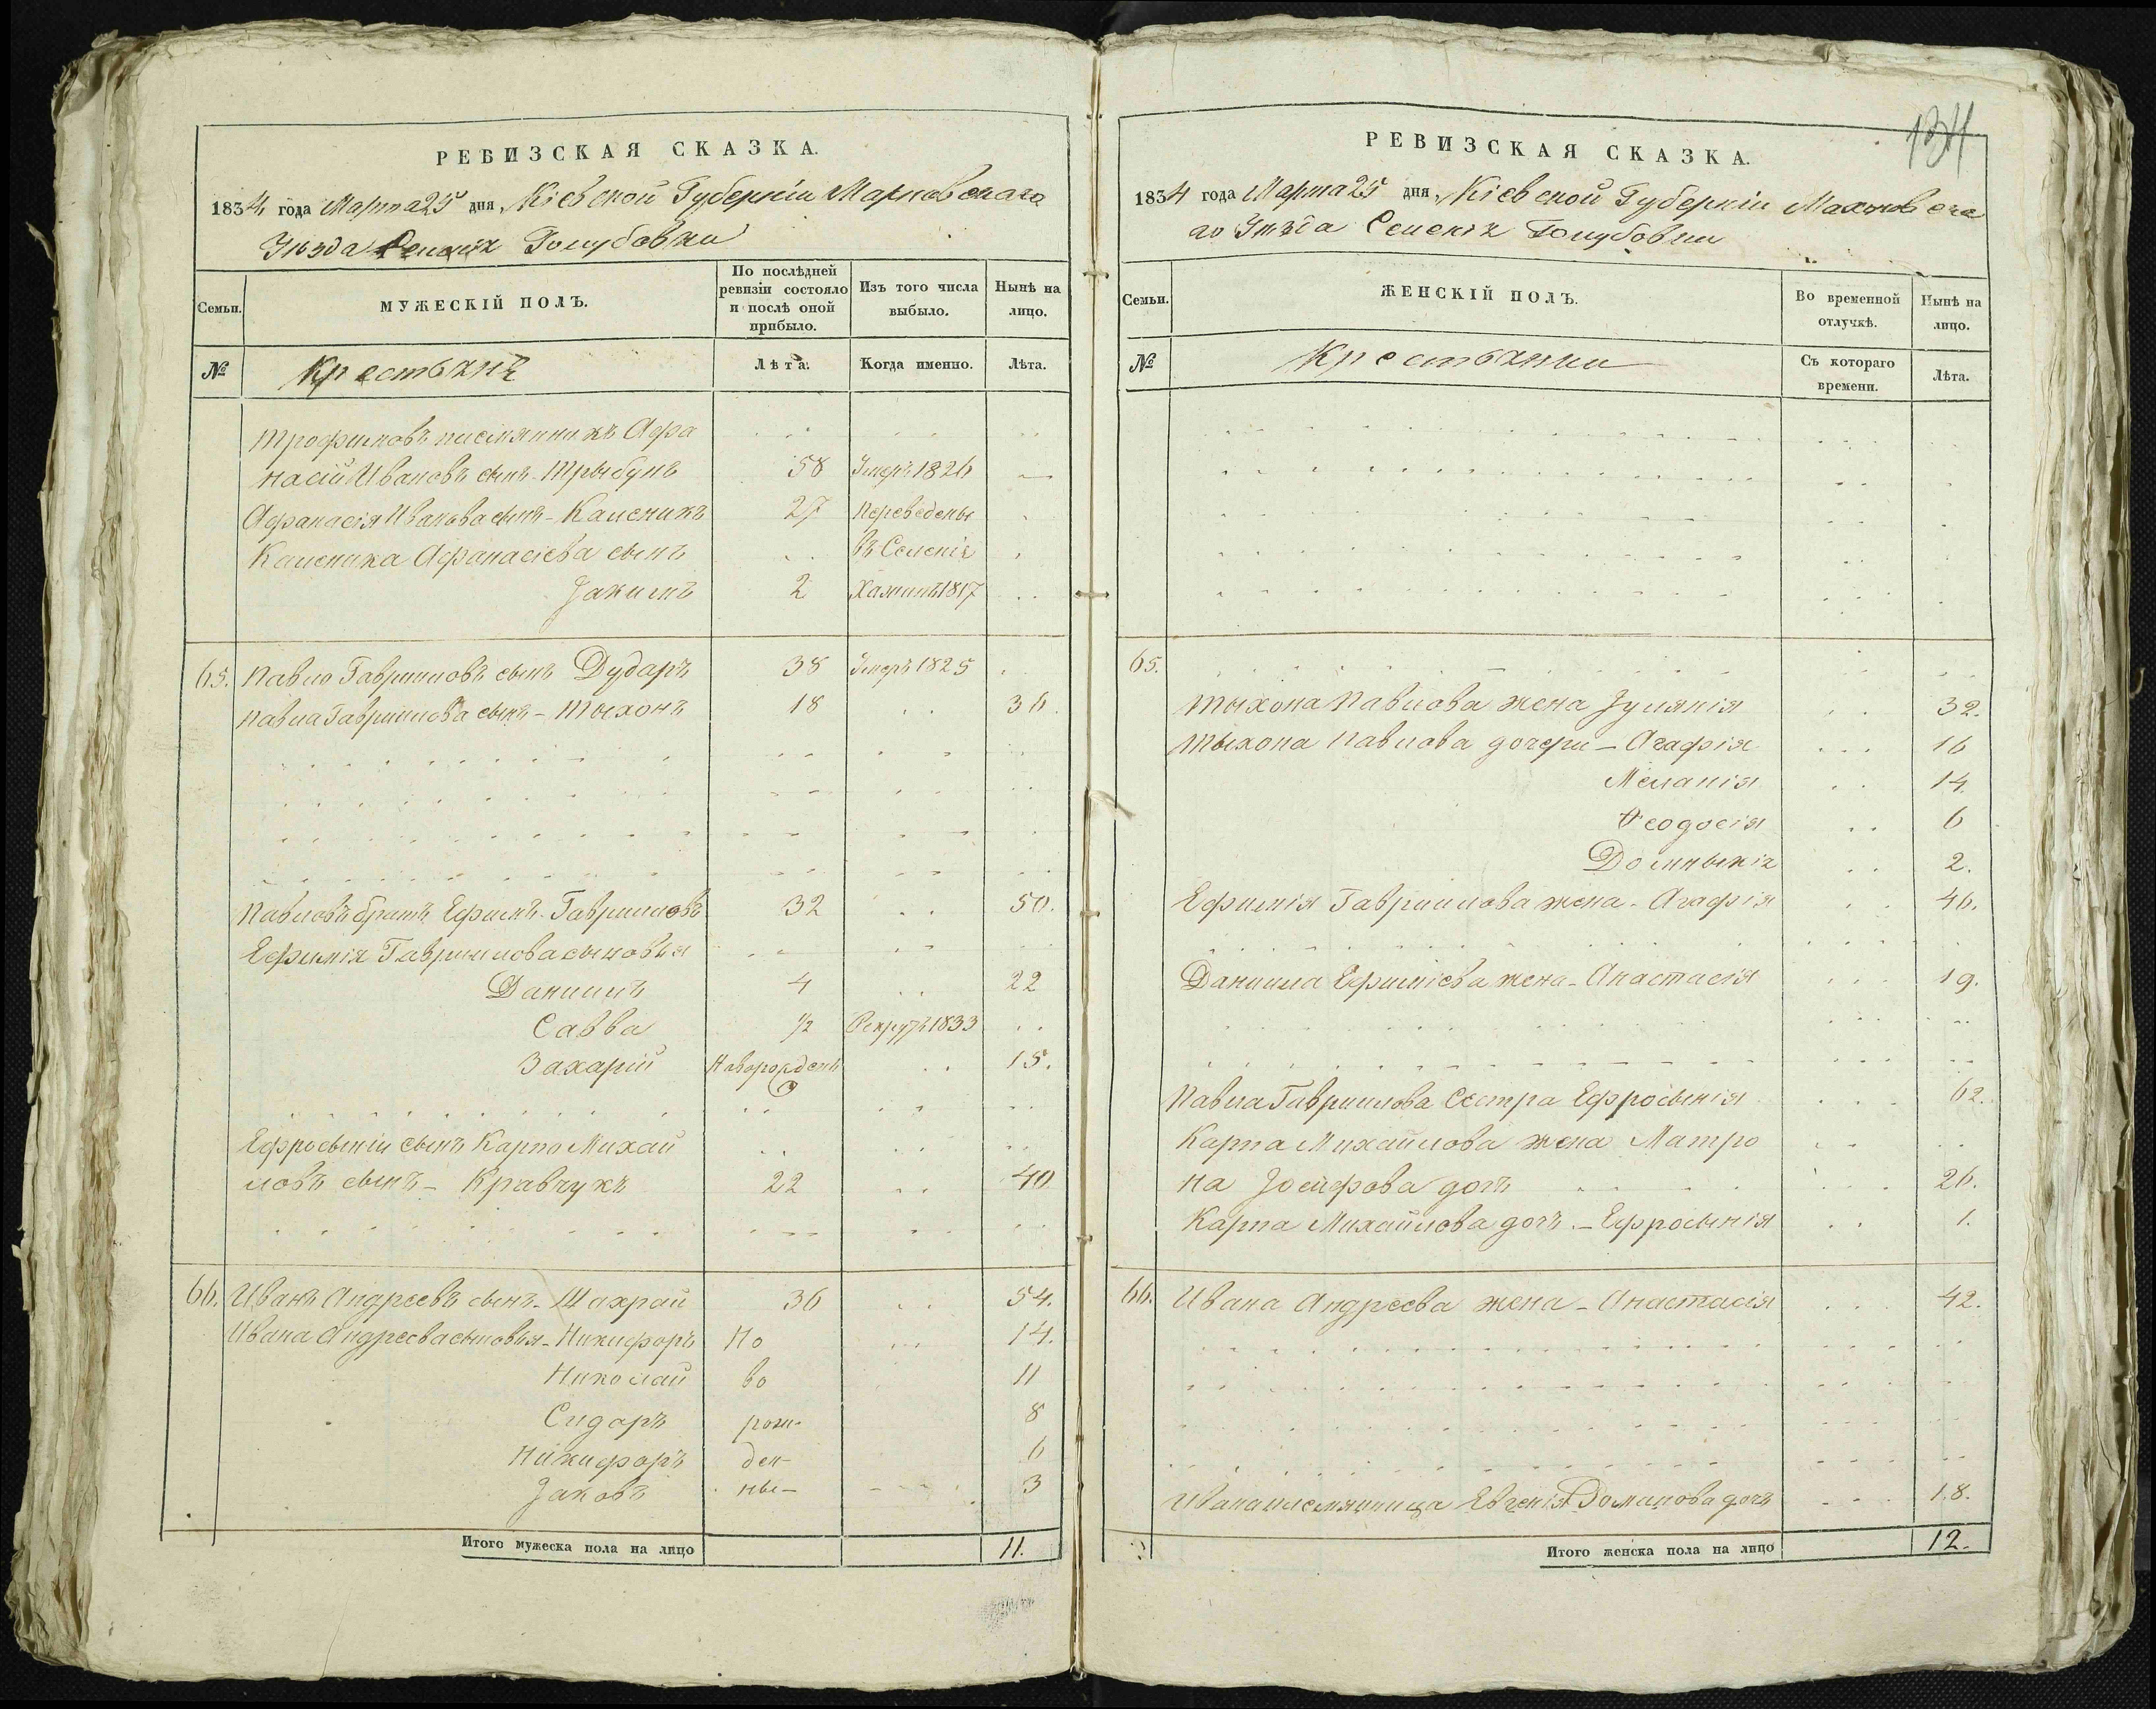 РЕВИЗСКАЯ СКАЗКА.
1834 года Марта 25 дня, Кіевской Губерніи Махновскаго
Уѣзда Селенія Голубовки
Семьи.
МУЖЕСКІЙ ПОЛЪ.
По послѣдней ревизіи состояло и послѣ оной прибыло.
Изъ того числа выбыло.
Нынѣ на лицо.
№
Крестьянъ
Лѣта.
Когда именно.
Лѣта.
Трофимовъ племянникъ Афа
насій Ивановъ сынъ Трыбунъ 58 Умеръ 1826
Афанасія Иванова сынъ - Каленикъ 27 Переведены
Каленика Афанасіева сынъ въ Селеніе
Јакимъ 2 1817
65. Павло Гавриловъ сынъ Дударъ 38 Умеръ 1825
Павла Гаврилова сынъ - Тыхонъ 18 36.
Павловъ братъ Ефимъ Гавриловъ 32 50.
Ефимія Гаврилова сыновья
Даниилъ 4 22
Савва 1/2 Рекрутъ 1833
Захарій Новорожденъ 15.
Ефросыніи сынъ Карпо Михай
ловъ сынъ - Кравчукъ 22 40
66. Иванъ Андреевъ сынъ - Шахрай 36 54.
Ивана Андреева сыновья - Никифоръ Но 14.
Николай во 11
Сидоръ рож- 8
Никифоръ ден- 6
Јаковъ ны- 3
Итого мужеска пола на лицо 11.
134
РЕВИЗСКАЯ СКАЗКА.
1834 года Марта 25 дня, Кіевской Губерніи Махновска
го Уѣзда Селенія Голубовки
Семьи.
ЖЕНСКІЙ ПОЛЪ.
Во временной отлучкѣ.
Нынѣ на лицо.
№
Крестьянки
Съ котораго времени.
Лѣта.
65.
Тыхона Павлова жена Јулянія 32.
Тыхона Павлова дочери - Агафія 16
Меланія 14.
Феодосія 6
Домникія 2.
Ефимія Гаврилова жена - Агафія 46.
Даниила Ефиміева жена - Анастасія 19.
Павла Гаврилова Сестра Ефросынія 62.
Карпа Михайлова жена Матро
на Јосифова дочь 26.
Карпа Михайлова дочь - Ефросынія 1.
66. Ивана Андреева жена - Анастасія 42.
Ивана племянница Евгенія Доманова дочь 18.
Итого женска пола на лицо 12.